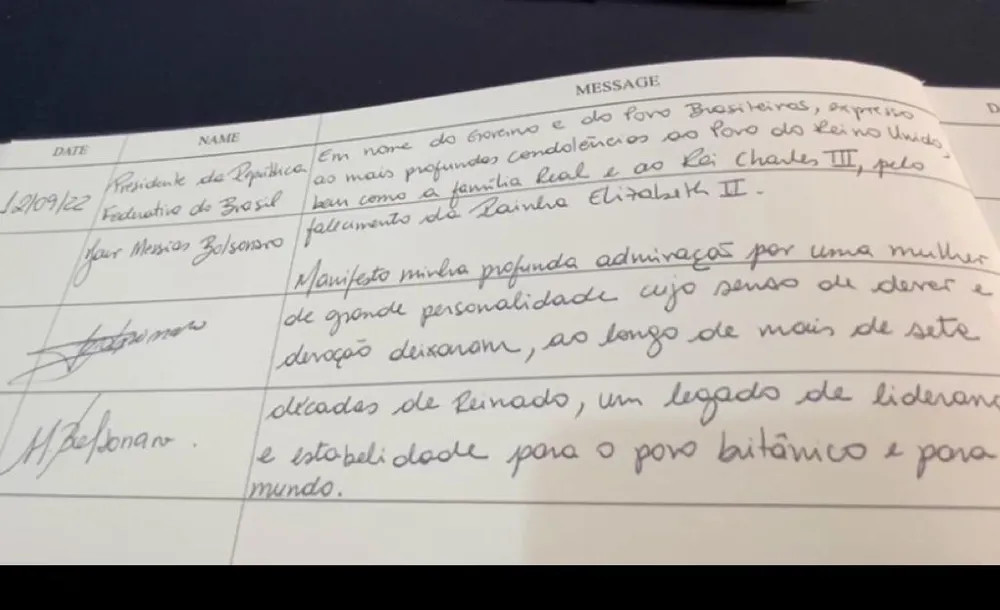 DATE NAME MESSAGE D
12/09/22 Presidente da República Em nome do Governo e do Povo Brasileiros, expresso
Federativa do Brasil as mais profundas condolências ao Povo do Reino Unido,
bem como a família Real e ao Rei Charles III, pelo
Jair Messias Bolsonaro falecimento da Rainha Elizabeth II.
Manifesto minha profunda admiração por uma mulher
de grande personalidade cujo senso de dever e
devoção deixaram, ao longo de mais de sete
décadas de Reinado, um legado de lideran
M. Bolsonaro. e estabelidade para o povo britânico e para
mundo.